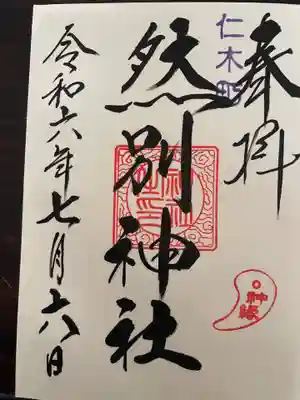 奉拝
仁木町
然別神社
令和六年七月六日
神縁